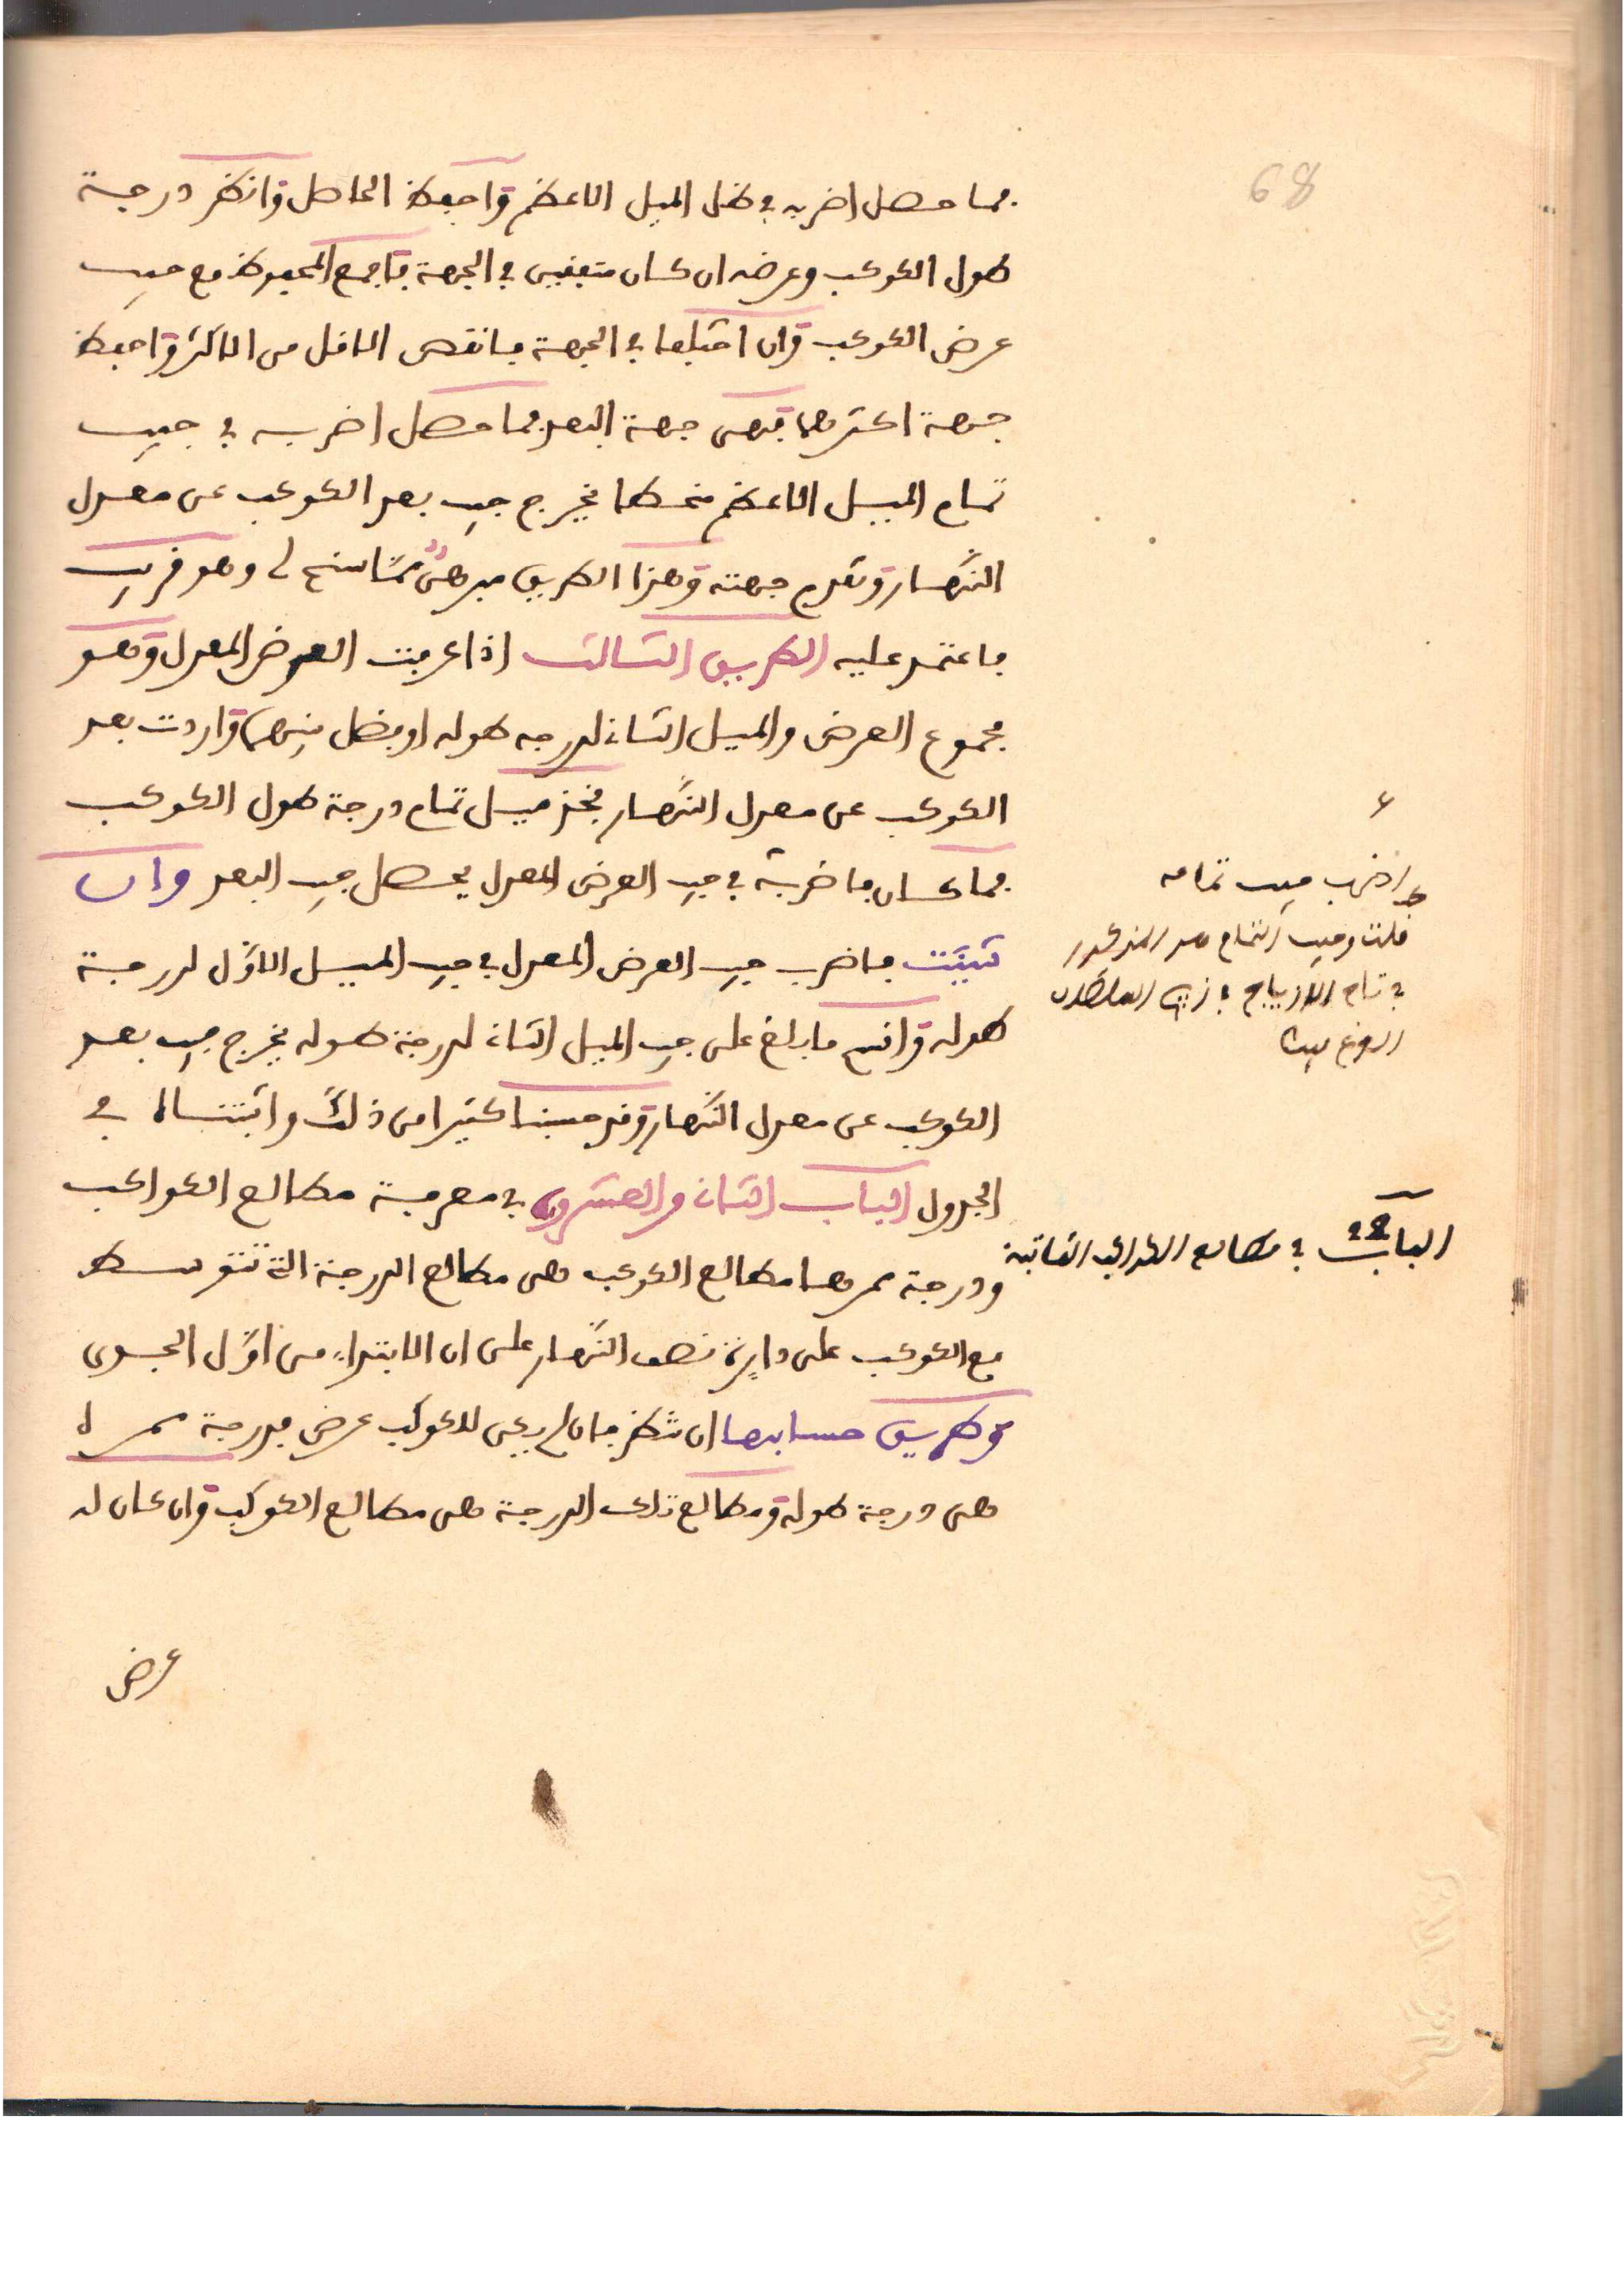 68
فما حصل اضربه في ظل الميل الاعظم واحفظ الحاصل وانظر درجة
طول الكوكب وعرضه ان كان متفقين في الجهة فاجمع المحفوظ مع جيب
عرض الكوكب وان اختلفا في الجهة فانقص الاقل من الاكثر واحفظ
جهة اكثرهما فهى جهة البعد فما حصل اضربه في جيب
تمام الميل الاعظم منحطا يخرج جيب بعد الكوكب عن معدل
النهار وتقدم جهته وهذا الطريق مبرهن مما سنح لى وهو قريب
فاعتمد عليه الطريق الثالث اذا عرفت العرض المعدل وهو
مجموع العرض والميل الثاني لدرجه طوله او فضل بينهما واردت بعد
الكوكب عن معدل النهار فخذ ميل تمام درجة طول الكوكب
فما كان فاضربه في جيب العرض المعدل يحصل جيب البعد وان
شيت فاضرب جيب العرض المعدل في جيب الميل الاول لدرجة
طوله واقسم ما بلغ على جيب الميل الثاني لدرجة طوله يخرج جيب بعد
الكوكب عن معدل النهار وقد حسبنا كثيرا من ذلك واثبتناه في
الجدول الباب الثاني والعشرون في معرفة مطالع الكواكب
ودرجة ممرها مطالع الكوكب هى مطالع الدرجة التي تتوسط
مع الكوكب على دايرة نصف النهار على ان الابتداء من اول الجدى
وطريق حسابها ان تنظر فان لم يكن للكوكب عرض فدرجة ممره
هى درجة طوله ومطالع تلك الدرجة هى مطالع الكوكب وان كان له
عرض
ع
اضرب جيب تمامه
قلت وجيب التمام هو المذكور
في تمام
الباب في مطالع الكواكب الثابتة